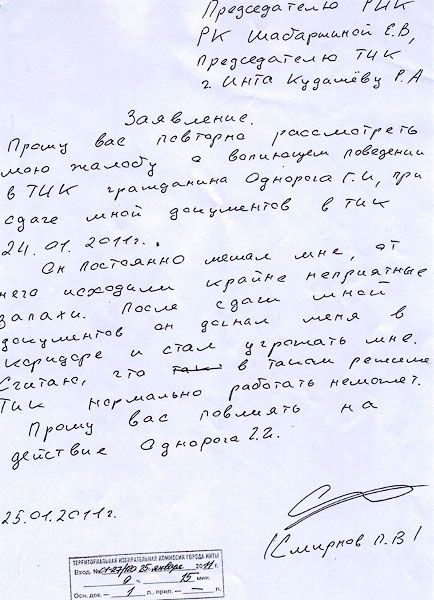 Председателю РИК
РК Шабаршиной Е.В,
Председателю ТИК
г. Инта Кудашёву Р.А
Заявление.
Прошу вас повторно рассмотреть
мою жалобу о вопиющем поведении
в ТИК гражданина Однорога Г.И, при
сдаче мной документов в ТИК
24.01.2011г.
Он постоянно мешал мне, от
него исходили крайне неприятные
запахи. После сдачи мной
документов он догнал меня в
каридоре и стал угрожать мне.
Считаю, что так в таком режиме
ТИК нормально работать неможет.
Прошу вас повлиять на
действие Однорога Г.И.
25.01.2011г.
(Смирнов П.В)
ТЕРРИТОРИАЛЬНАЯ ИЗБИРАТЕЛЬНАЯ КОМИССИЯ ГОРОДА ИНТЫ
Вход. № 01-27/100 25 января 2011 г.
9 ч. 15 мин.
Осн. док. – 1 л., прил. – — л.